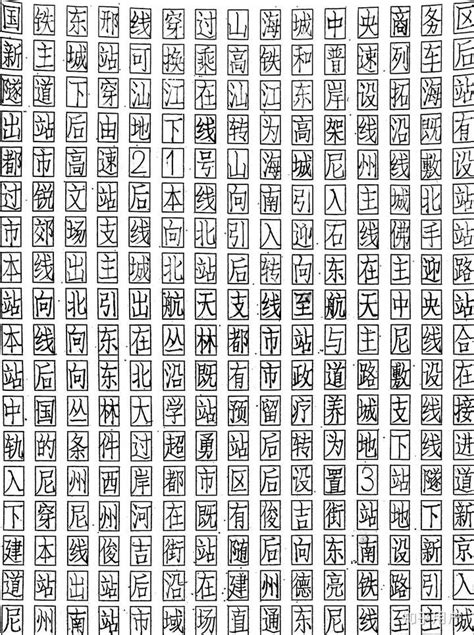 国铁东邢线穿过山海城中央商务区
新主城站可换乘高铁和普速列车后
隧道下穿汕江在汕江东岸设拓海站
出站后由地下线转为高架线沿既有
都市高速21号山海城尼州线敷设
过锐文站后本线向南引入主城北站
市郊场支线向北引入迎石线佛手站
本线出主城北站后转向东在主迎路
站向北引出航天支线至航天中央站
本线向东在丛林都市站与主尼线合
站后向东北沿既有市政道路敷设在
中国丛林大学站预留疗养城支线接
轨的条件过超勇站后转为地下线进
入尼州西岸都市区后设置3站隧道
下穿尼州河在既有俊吉街站地下新
建本线俊吉街站随后向东南设新京
道站出站后沿在建州德亮铁路引入
尼州南站市域场直通东尼线至主城